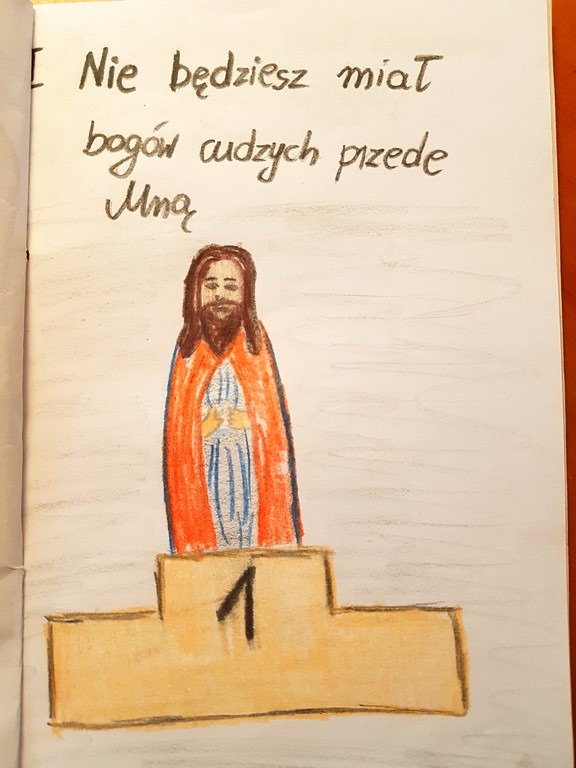 I Nie będziesz miał
bogów cudzych przede
Mną
1